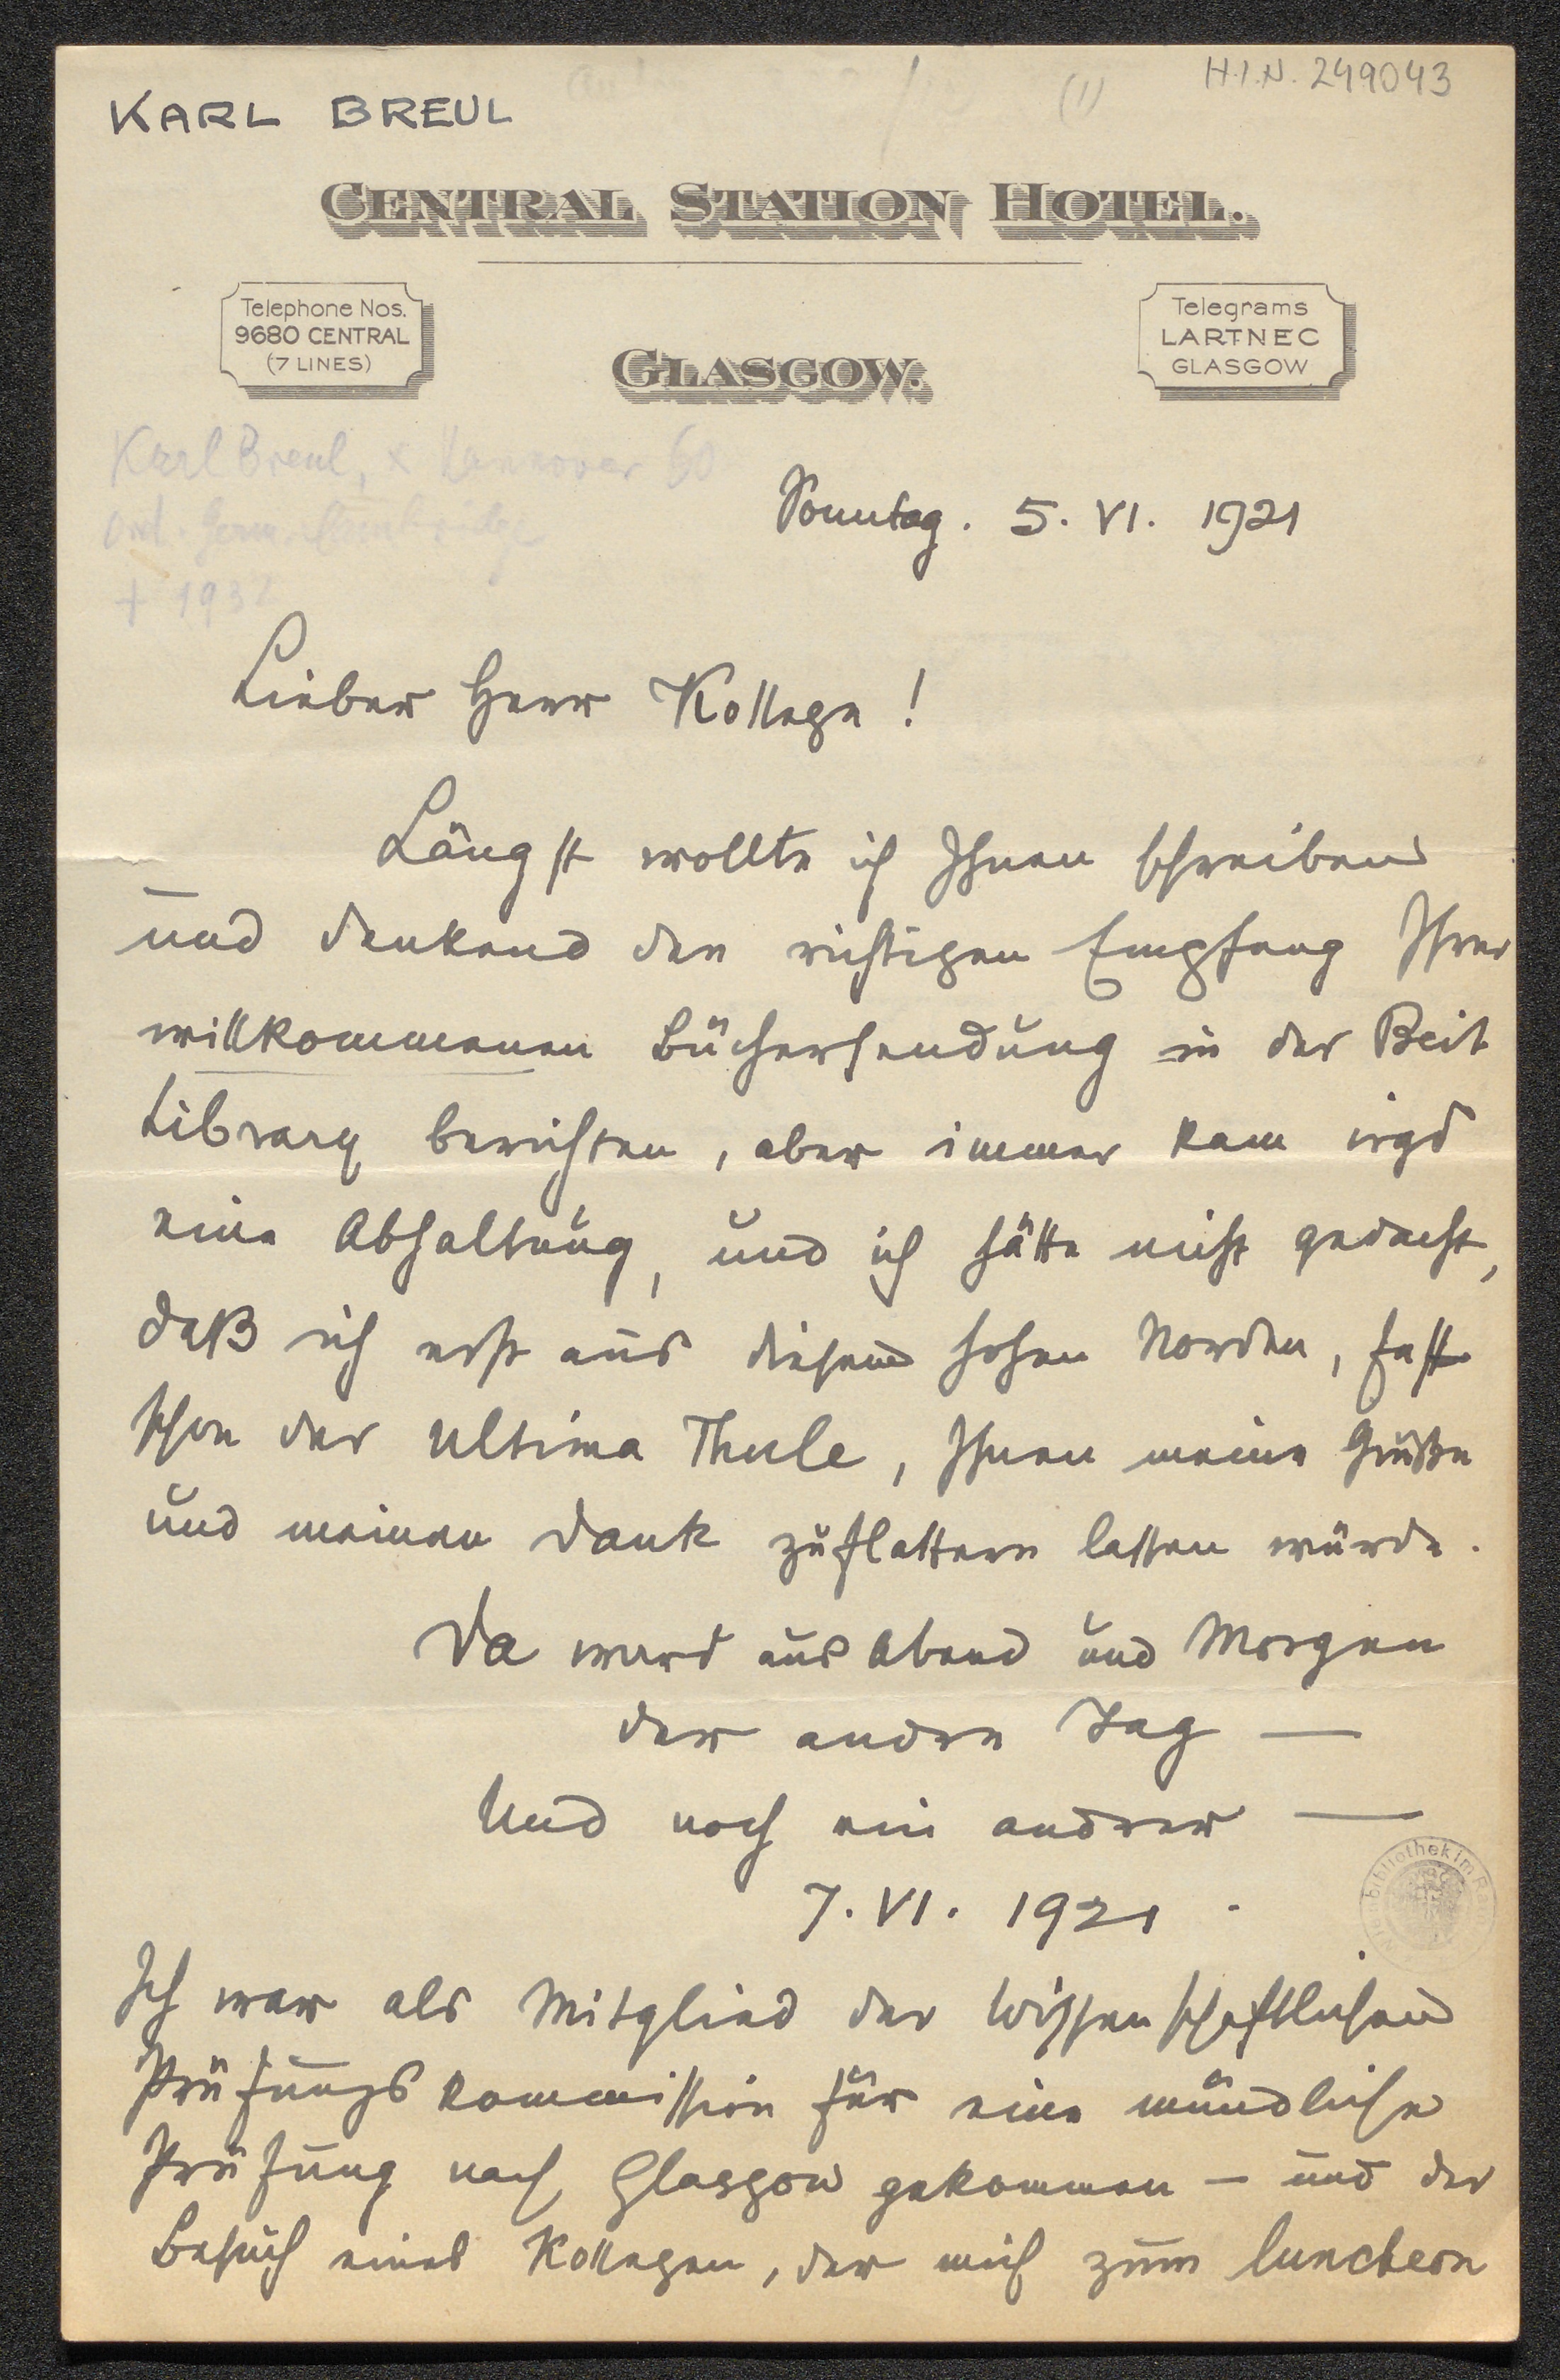 H.I.N. 249043
(1)
KARL BREUL
CENTRAL STATION HOTEL.
Telephone Nos.
9680 CENTRAL
(7 LINES)
GLASGOW.
Telegrams
LARTNEC
GLASGOW
Karl Breul, × Hannover 60
ord. Germ. Cambridge
† 1932
Sonntag. 5. VI. 1921
Lieber Herr Kollege!
Längst wollte ich Ihnen schreiben
und dankend den richtigen Empfang Ihrer
willkommenen Büchersendung in der Beit
Library berichten, aber immer kam irgd
eine Abhaltung, und ich hätte nicht gedacht,
daß ich erst aus diesem hohen Norden, fast
schon der Ultima Thule, Ihnen meine Grüße
und meinen Dank zuflattern lassen würde.
Da ward aus Abend und Morgen
der andre Tag —
Und noch ein andrer —
7. VI. 1921.
Ich war als Mitglied der Wissenschaftlichen
Prüfungskommission für eine mündliche
Prüfung nach Glasgow gekommen – und der
Besuch eines Kollegen, der mich zum luncheon